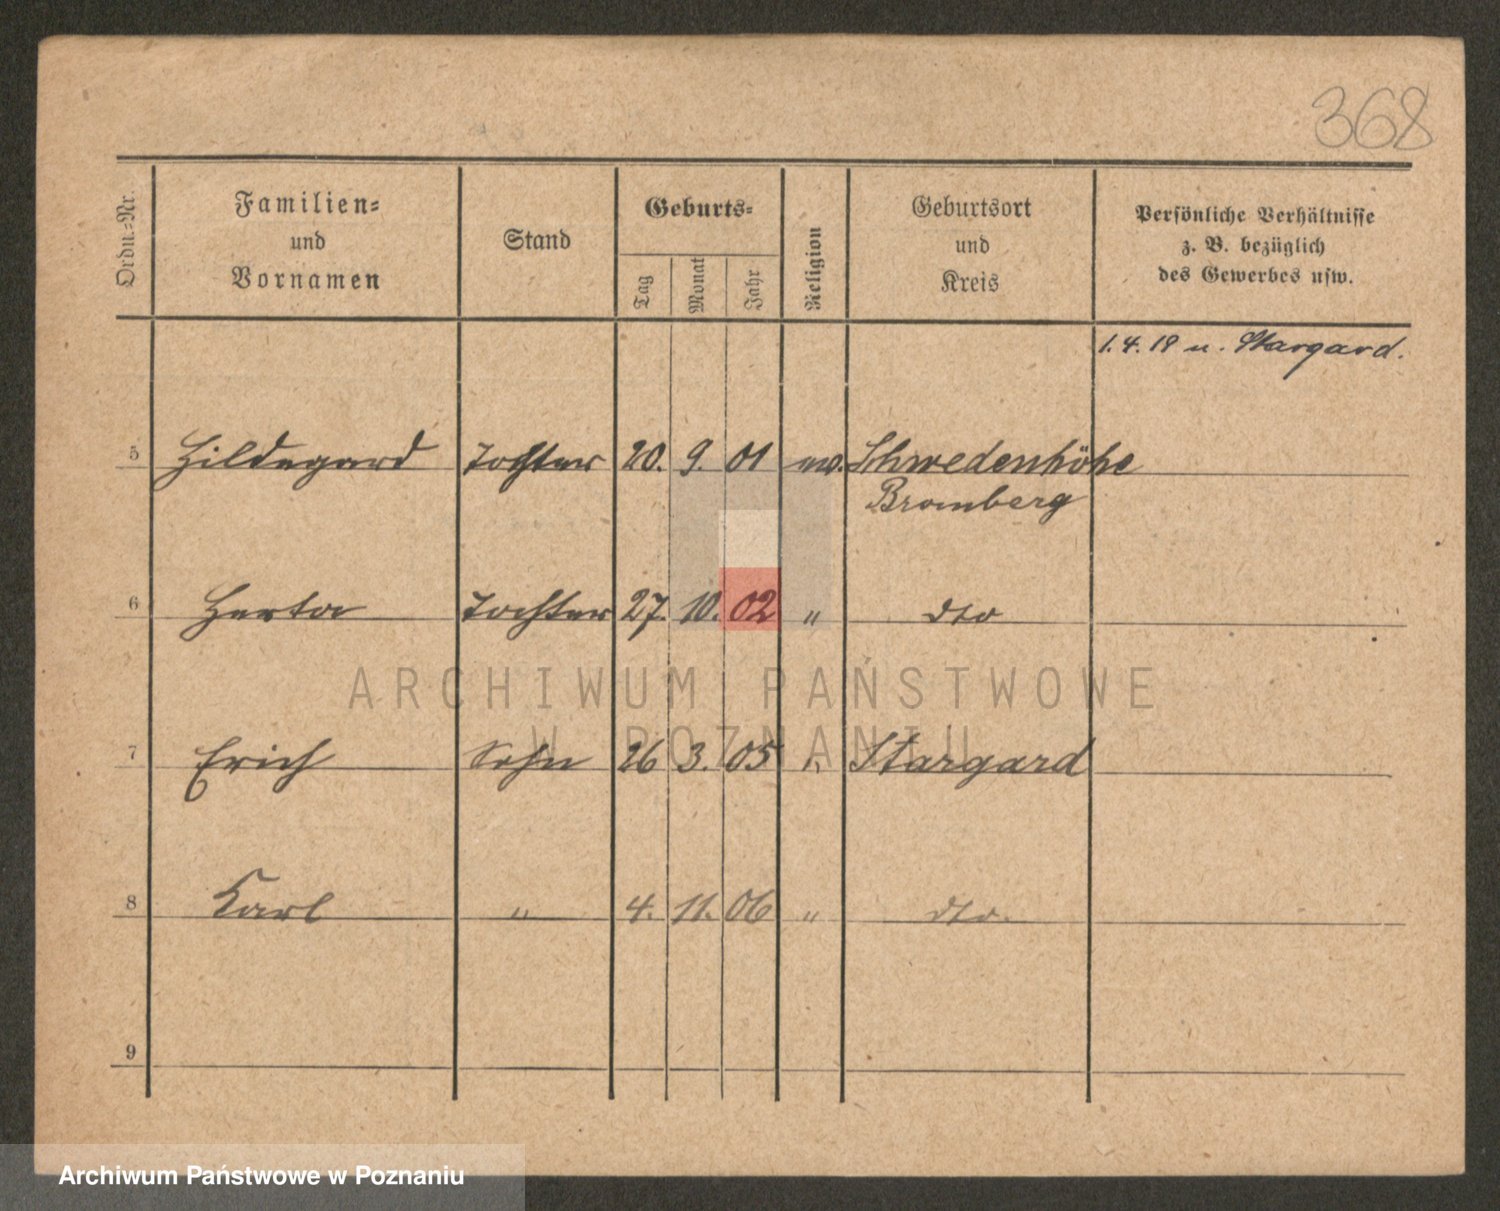 368
Ordn.=Nr.
Familien=
und
Vornamen
Stand
Geburts=
Tag
Monat
Jahr
Religion
Geburtsort
und
Kreis
Persönliche Verhältnisse
z. B. bezüglich
des Gewerbes usw.
1.4.18 n. Stargard.
5 Hildegard Tochter 20. 9. 01 ev. Schwedenhöhe
Bromberg
6 Herta Tochter 27. 10. 02 " dto
ARCHIWUM PAŃSTWOWE
W POZNANIU
7 Erich Sohn 26 3. 05 " Stargard
8 Karl " 4. 11. 06 " dto.
9
Archiwum Państwowe w Poznaniu